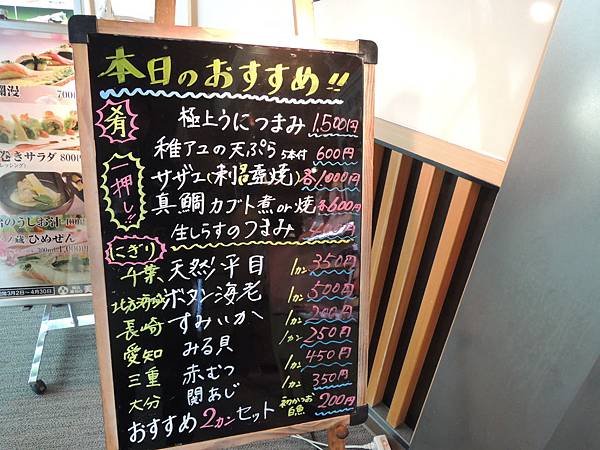 本日のおすすめ!!
肴 極上うにつまみ 1,500円
稚アユの天ぷら 5本付 600円
押し!!
サザエ(刺・壺焼)各1000円
真鯛カブト煮or焼 各600円
生しらすのつまみ
にぎり
千葉 天然平目 1カン 350円
北海道 ボタン海老 1カン 500円
長崎 すみいか 1カン 200円
愛知 みる貝 1カン 250円
三重 赤むつ 1カン 450円
大分 関あじ 1カン 350円
おすすめ2カンセット 初かつお 白魚 200円
700
巻きサラダ 800円
のうしお汁
ノ蔵 ひめぜん
300ml 1,000円
3月2日~4月30日